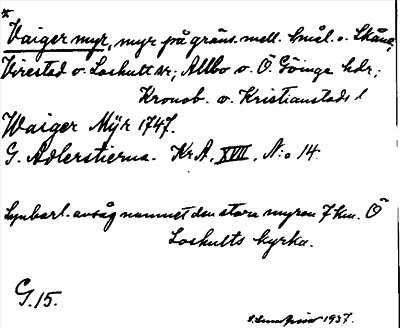 *
Vaiger myr, myr på gräns. mell. Smål. o. Skåne,
Virestad o. Loshult sr; Allbo o. Ö. Göinge hdr;
Kronob. o. Kristianstads l
Waiger Mÿr 1747.
G. Adlerstierna. KrA, XVII, N:o 14.
Synbarl. avsåg namnet den stora myren 7 km. Ö
Loshults kyrka.
G. 15.
1937.